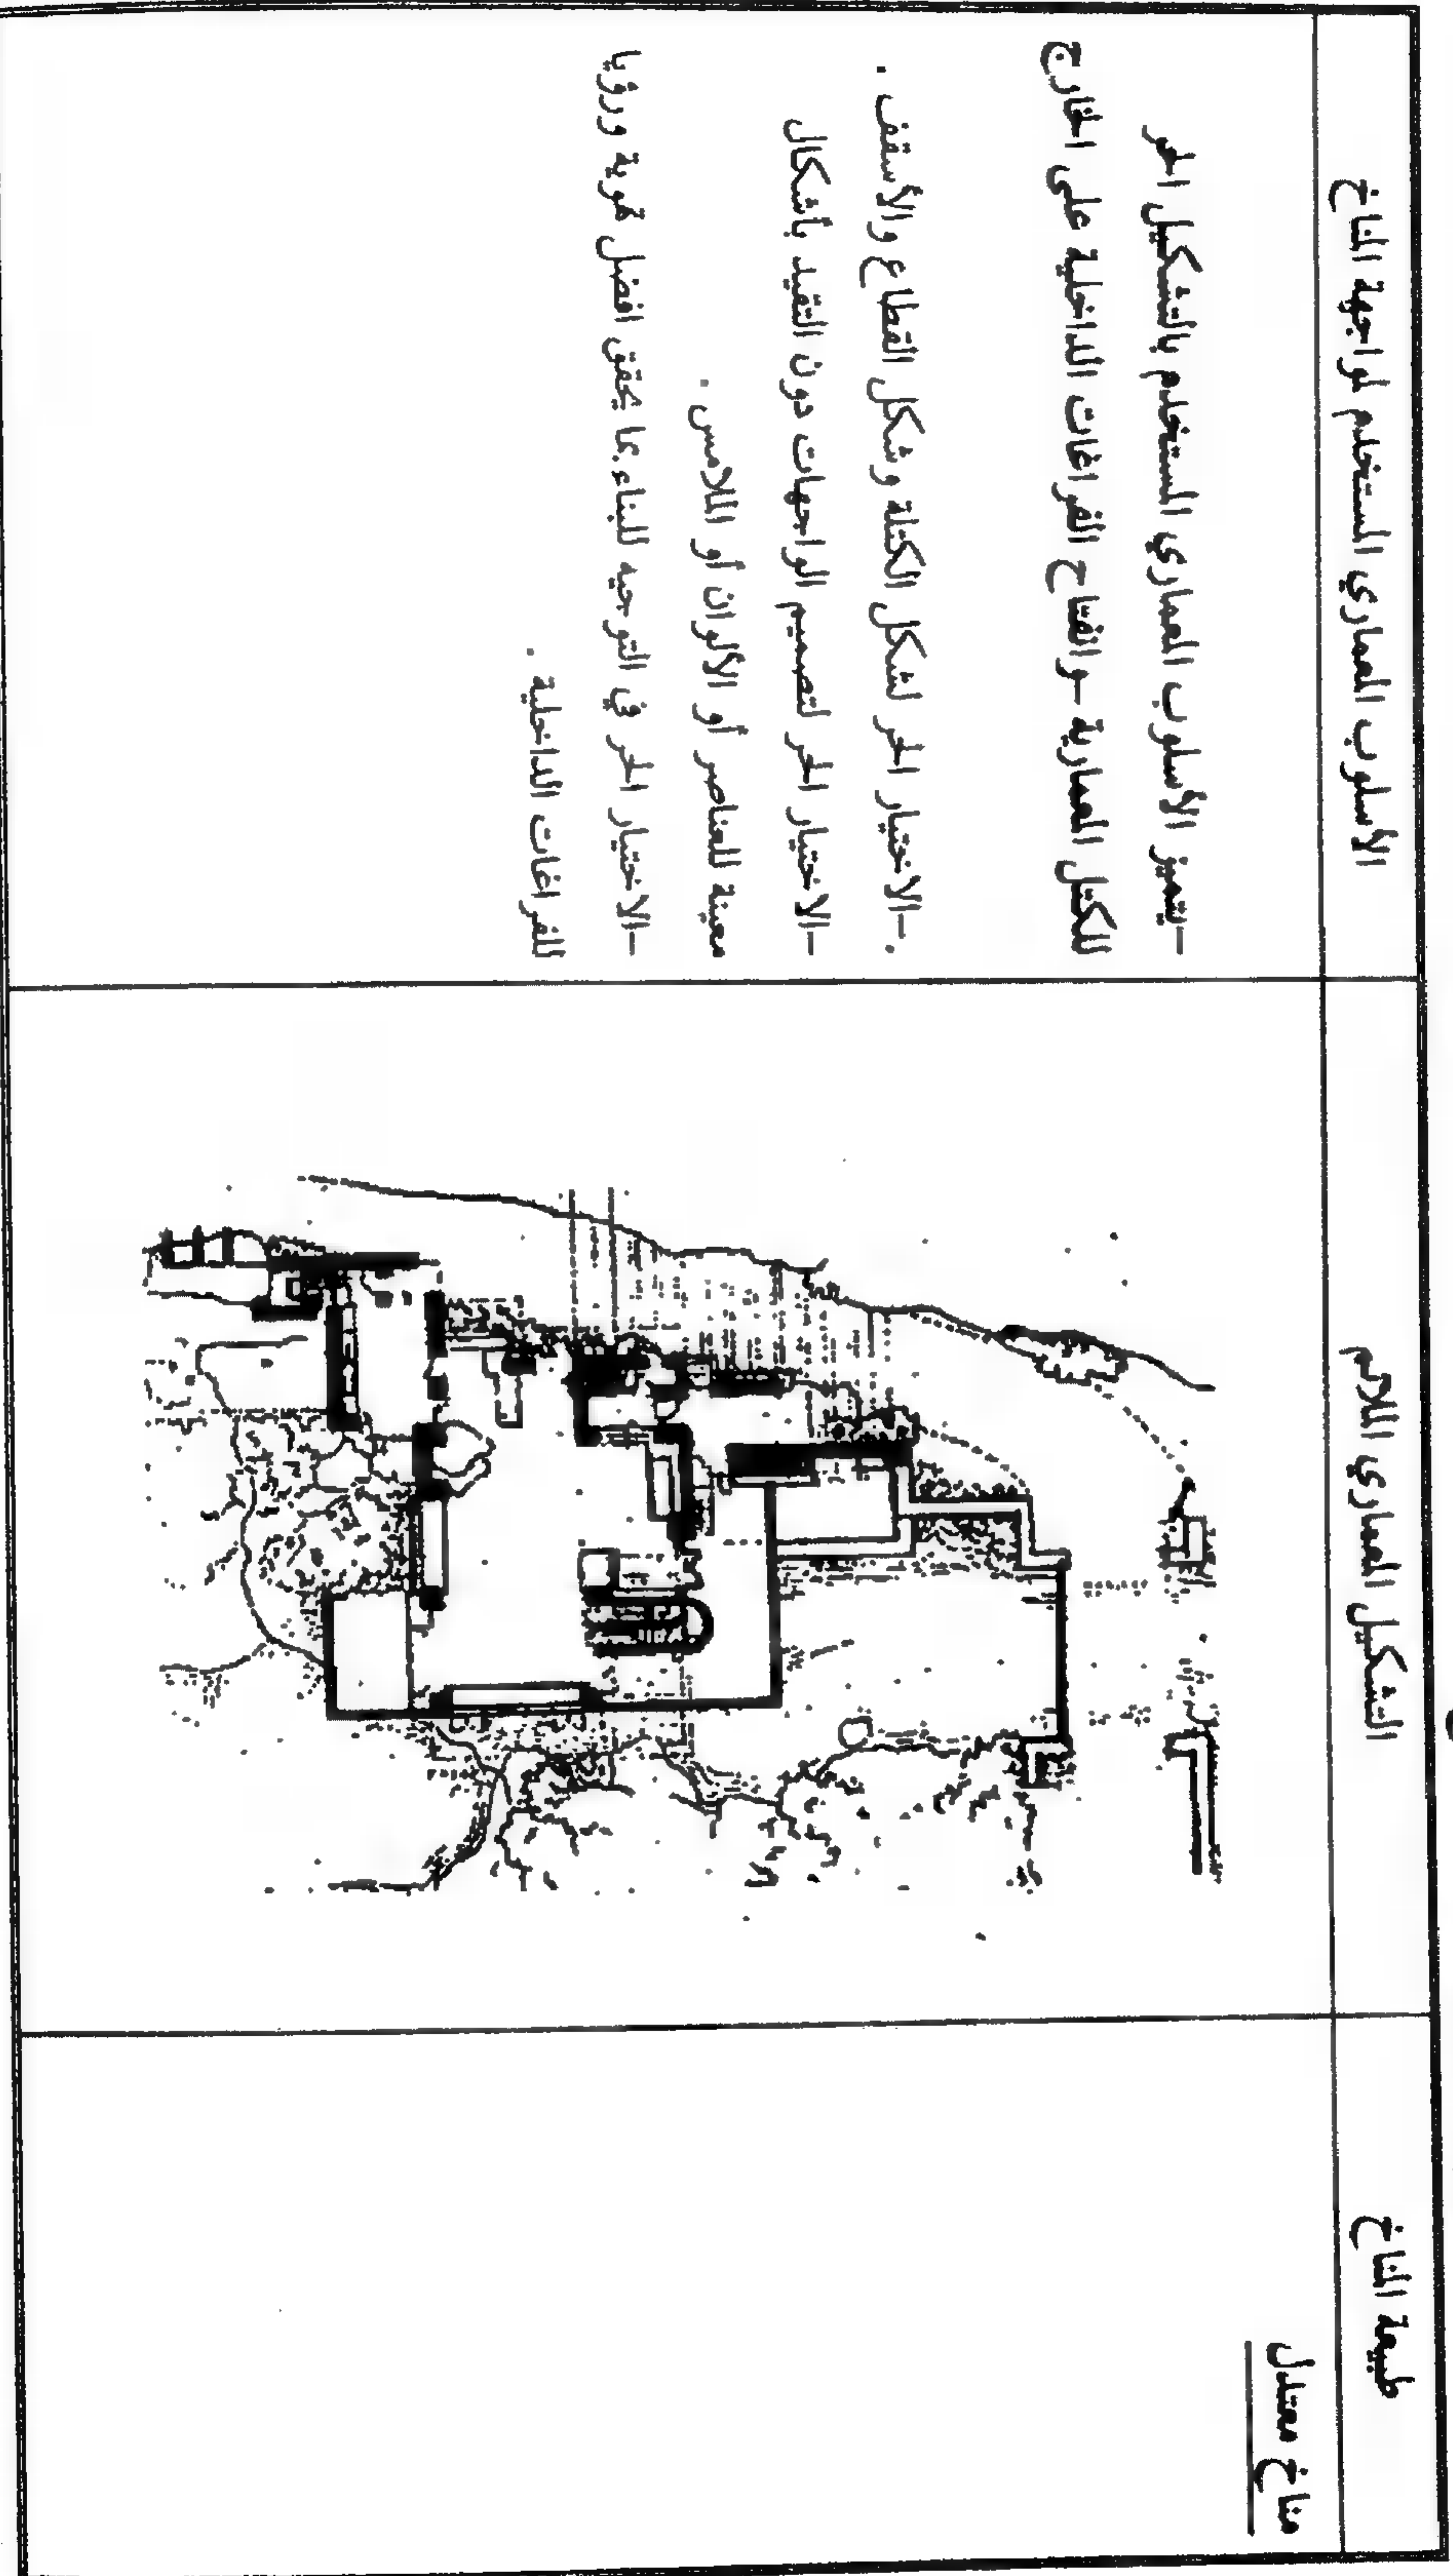 طبيعة المناخ
التشكيل المعماري الملائم
الأسلوب المعماري المستخدم لمواجهة المناخ
مناخ معتدل
–يتميز الأسلوب المعماري المستخدم بالتشكيل الحر
للكتل المعمارية –وانفتاح الفراغات الداخلية على الخارج
.–الاختيار الحر لشكل الكتلة وشكل القطاع والأسقف .
–الاختيار الحر لتصميم الواجهات دون التقيد بأشكال
معينة للعناصر أو الألوان أو الملامس .
–الاختيار الحر في التوجيه للبناء بما يحقق افضل تهوية ورؤيا
للفراغات الداخلية .